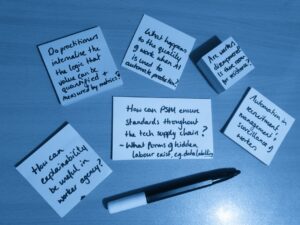 Do practitioners
internalise the
the logic that
value can be
quantified +
measured by metrics?
What happens
to the quality
of work when AI
is used to
automate production?
Are workers
disempowered?
Is there room
for resistance?
How can PSM ensure
standards throughout
the tech supply chain?
- What forms of hidden
labour exist, eg. data labellers
Automation in
recruitment,
management &
surveillance of
workers
How can
explainability
be useful in
worker agency?